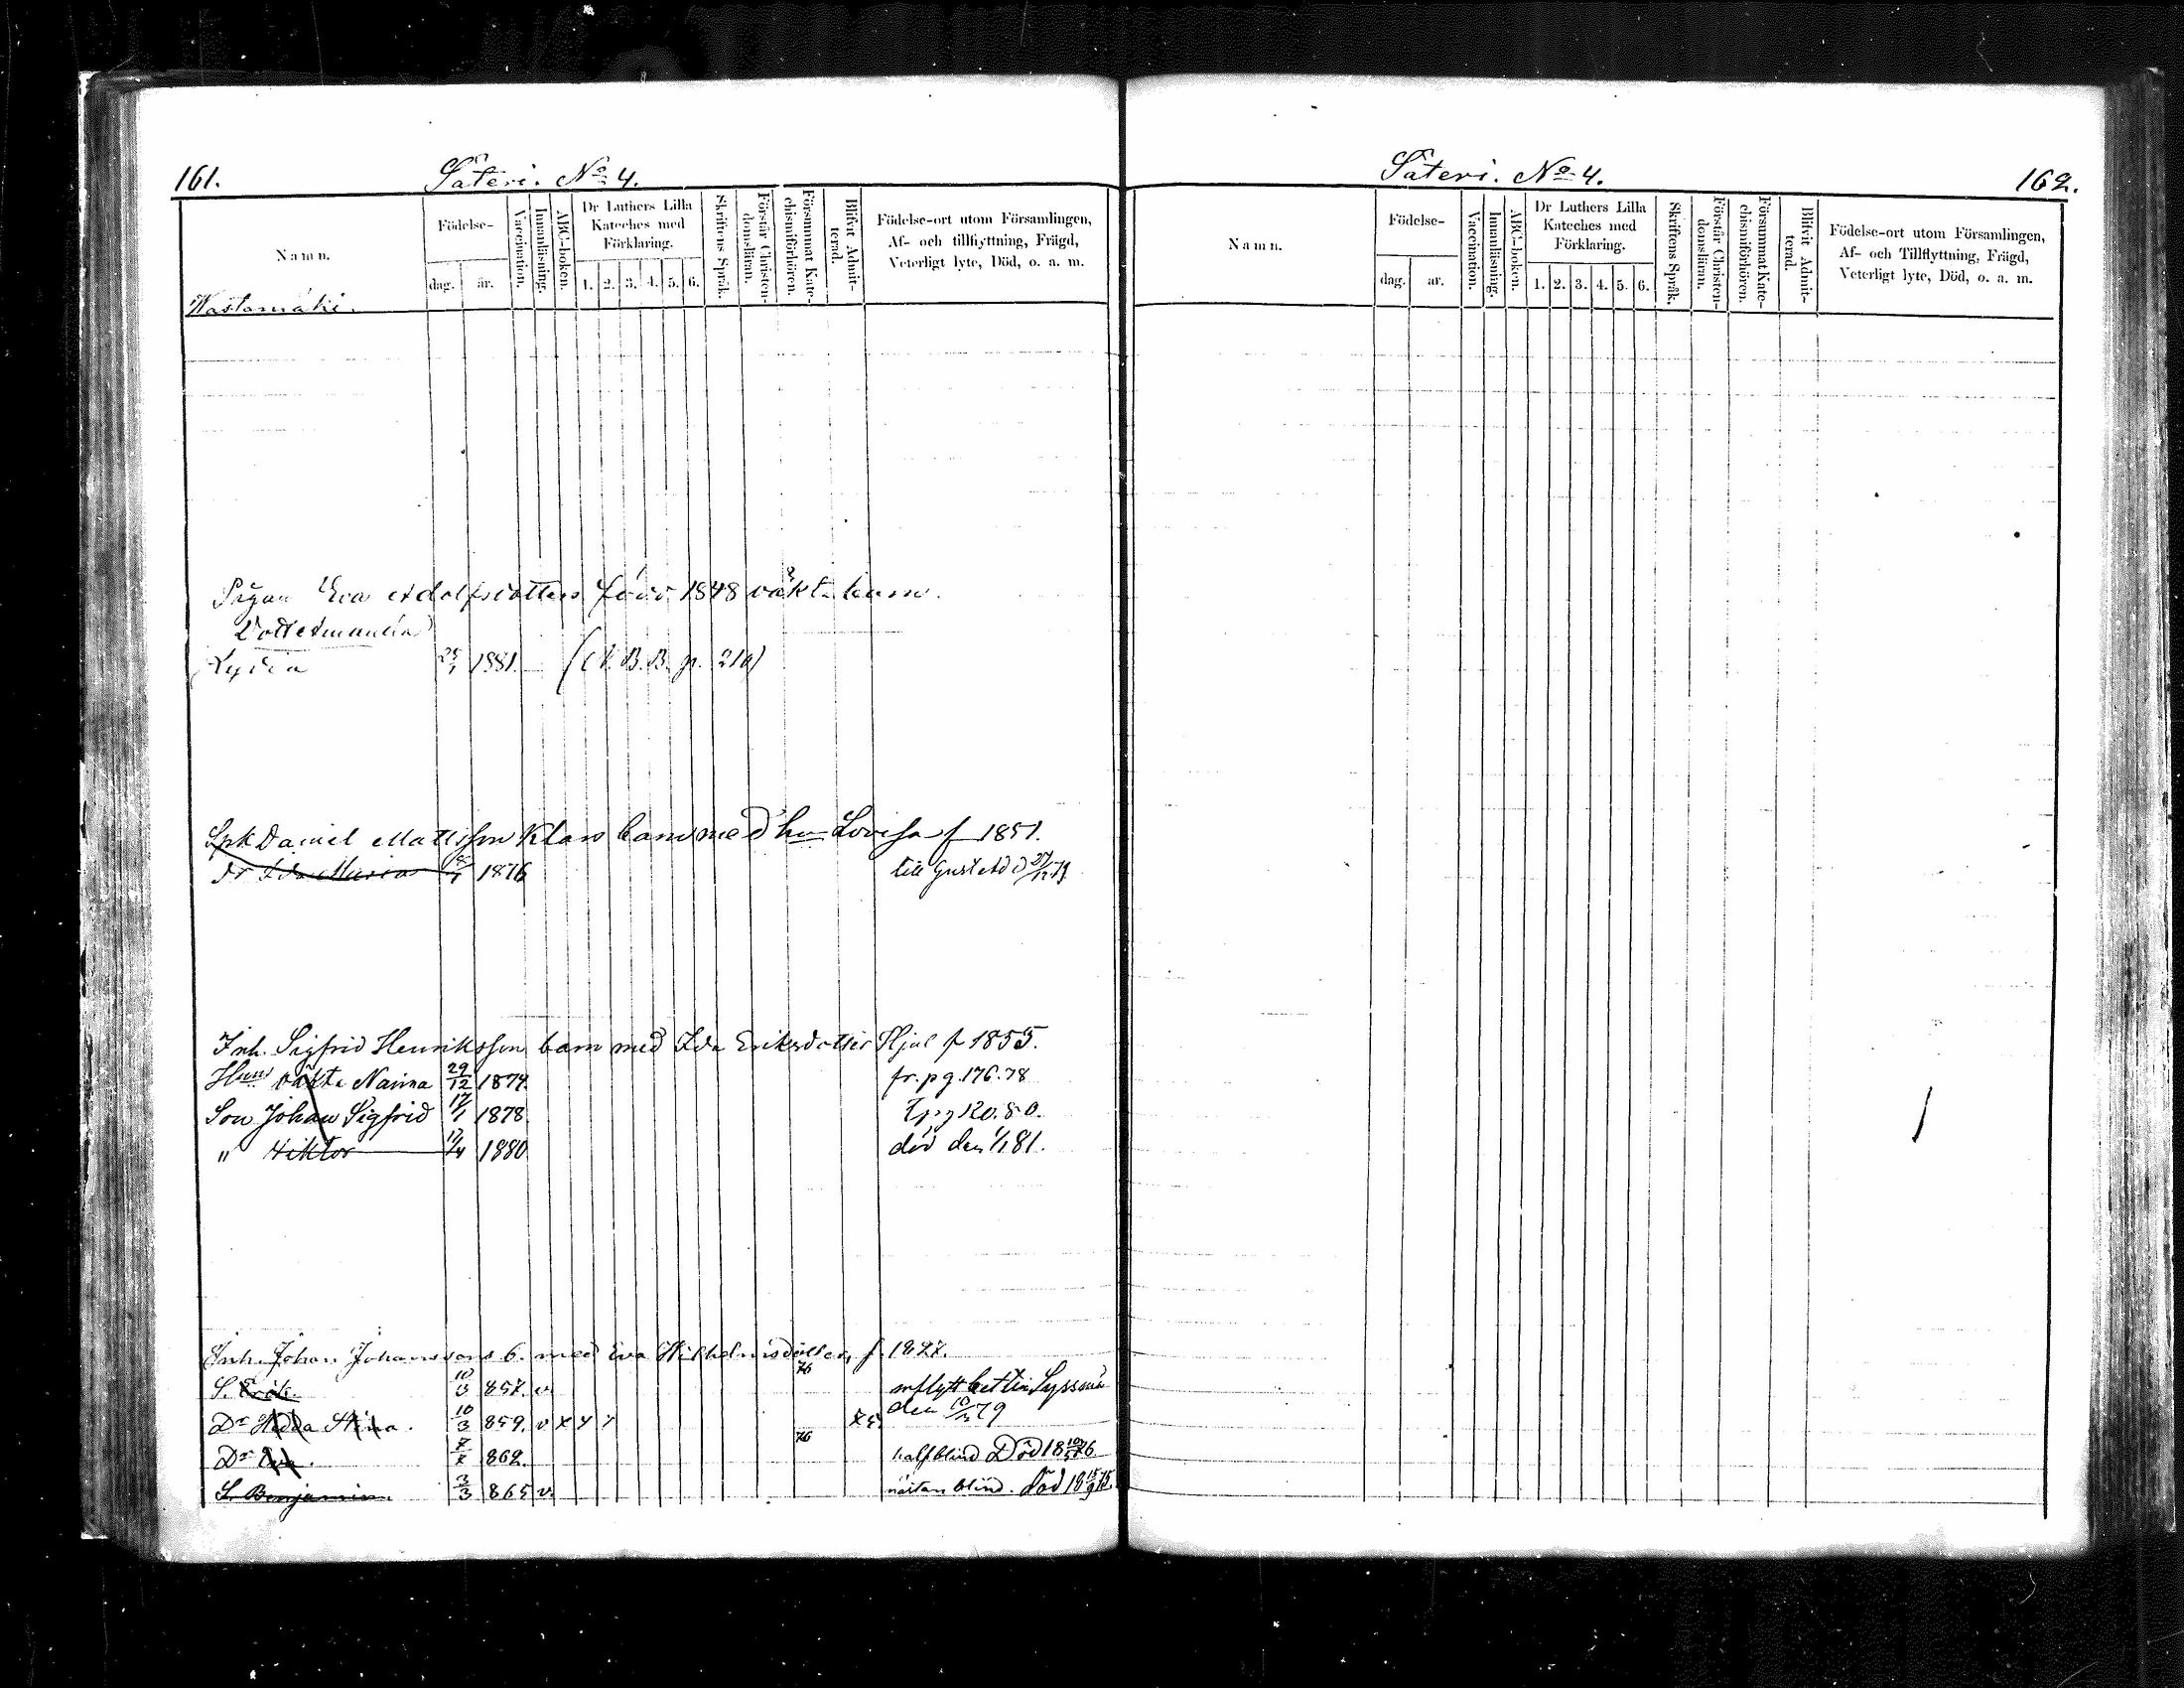 161. Säteri. No 4.
Namn. Födelse- dag. år. Vaccination. Innanläsning. ABC-boken. Dr Luthers Lilla Kateches med Förklaring. 1. 2. 3. 4. 5. 6. Skriftens Språk. Förstår Christen-domsläran. Försummat Kate-chismiförhören. Blifvit Admit-terad. Födelse-ort utom Församlingen, Af- och tillflyttning, Frägd, Veterligt lyte, Död, o. a. m.
Wastamäki.
Pigan Eva Adolfsdotters född 1848 oäkt. barn.
Lydia 25/1 1881. (N. B. B. p. 210)
Spk Daniel Mattsson Klars barn med hu Lovisa f 1851.
dr Ida Maria 1876 till Gustaf
Inh. Sigfrid Henriksson barn med Ida Eriksdotter Hjul f 1855.
Hens oäkta Nanna 29/12 1874 fr. pg. 176. 78
Son Johan Sigfrid 17/1 1878. T pg 120. 80.
" Viktor 17/4 1880 död den 1/1 81.
Inh. Johan Johanssons b. med Eva Wilhelmsdotter, f. 1827.
S. Erik. 10/3 857. v 76 utflytt bett
Dr Hedda Stina. 10/3 859. v x y y den 10/ 79
Dr Eva. 862. 76 halfblind Död 18 76
S. Benjamin. 3/3 865 v. nästan blind. Död 18 15/9 75.
Säteri. No 4. 162.
Namn. Födelse- dag. år. Vaccination. Innanläsning. ABC-boken. Dr Luthers Lilla Kateches med Förklaring. 1. 2. 3. 4. 5. 6. Skriftens Språk. Förstår Christen-domsläran. Försummat Kate-chismiförhören. Blifvit Admit-terad. Födelse-ort utom Församlingen, Af- och Tillflyttning, Frägd, Veterligt lyte, Död, o. a. m.